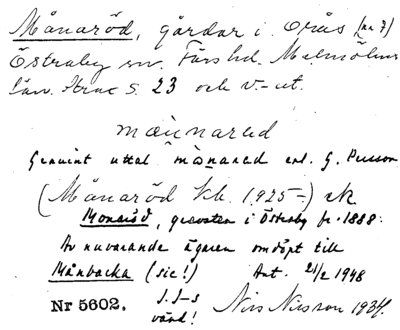 Månaröd, gårdar i Orås (nr 7)
Östraby sn. Färs hd. Malmöhus
län. Htrac S. 23 och v.-ut.
mæ̀nnarəd
Genuint uttal mànarəd enl. G. Persson
(Månaröd Kb. 1925-) ek
Monaröd, gravsten i Östraby fr. 1888.
Av nuvarande ägaren omdöpt till
Månbacka (sic!) Ant. 21/2 1948
Nr 5602. S. J-s Nils Nilsson 1934.
värd!